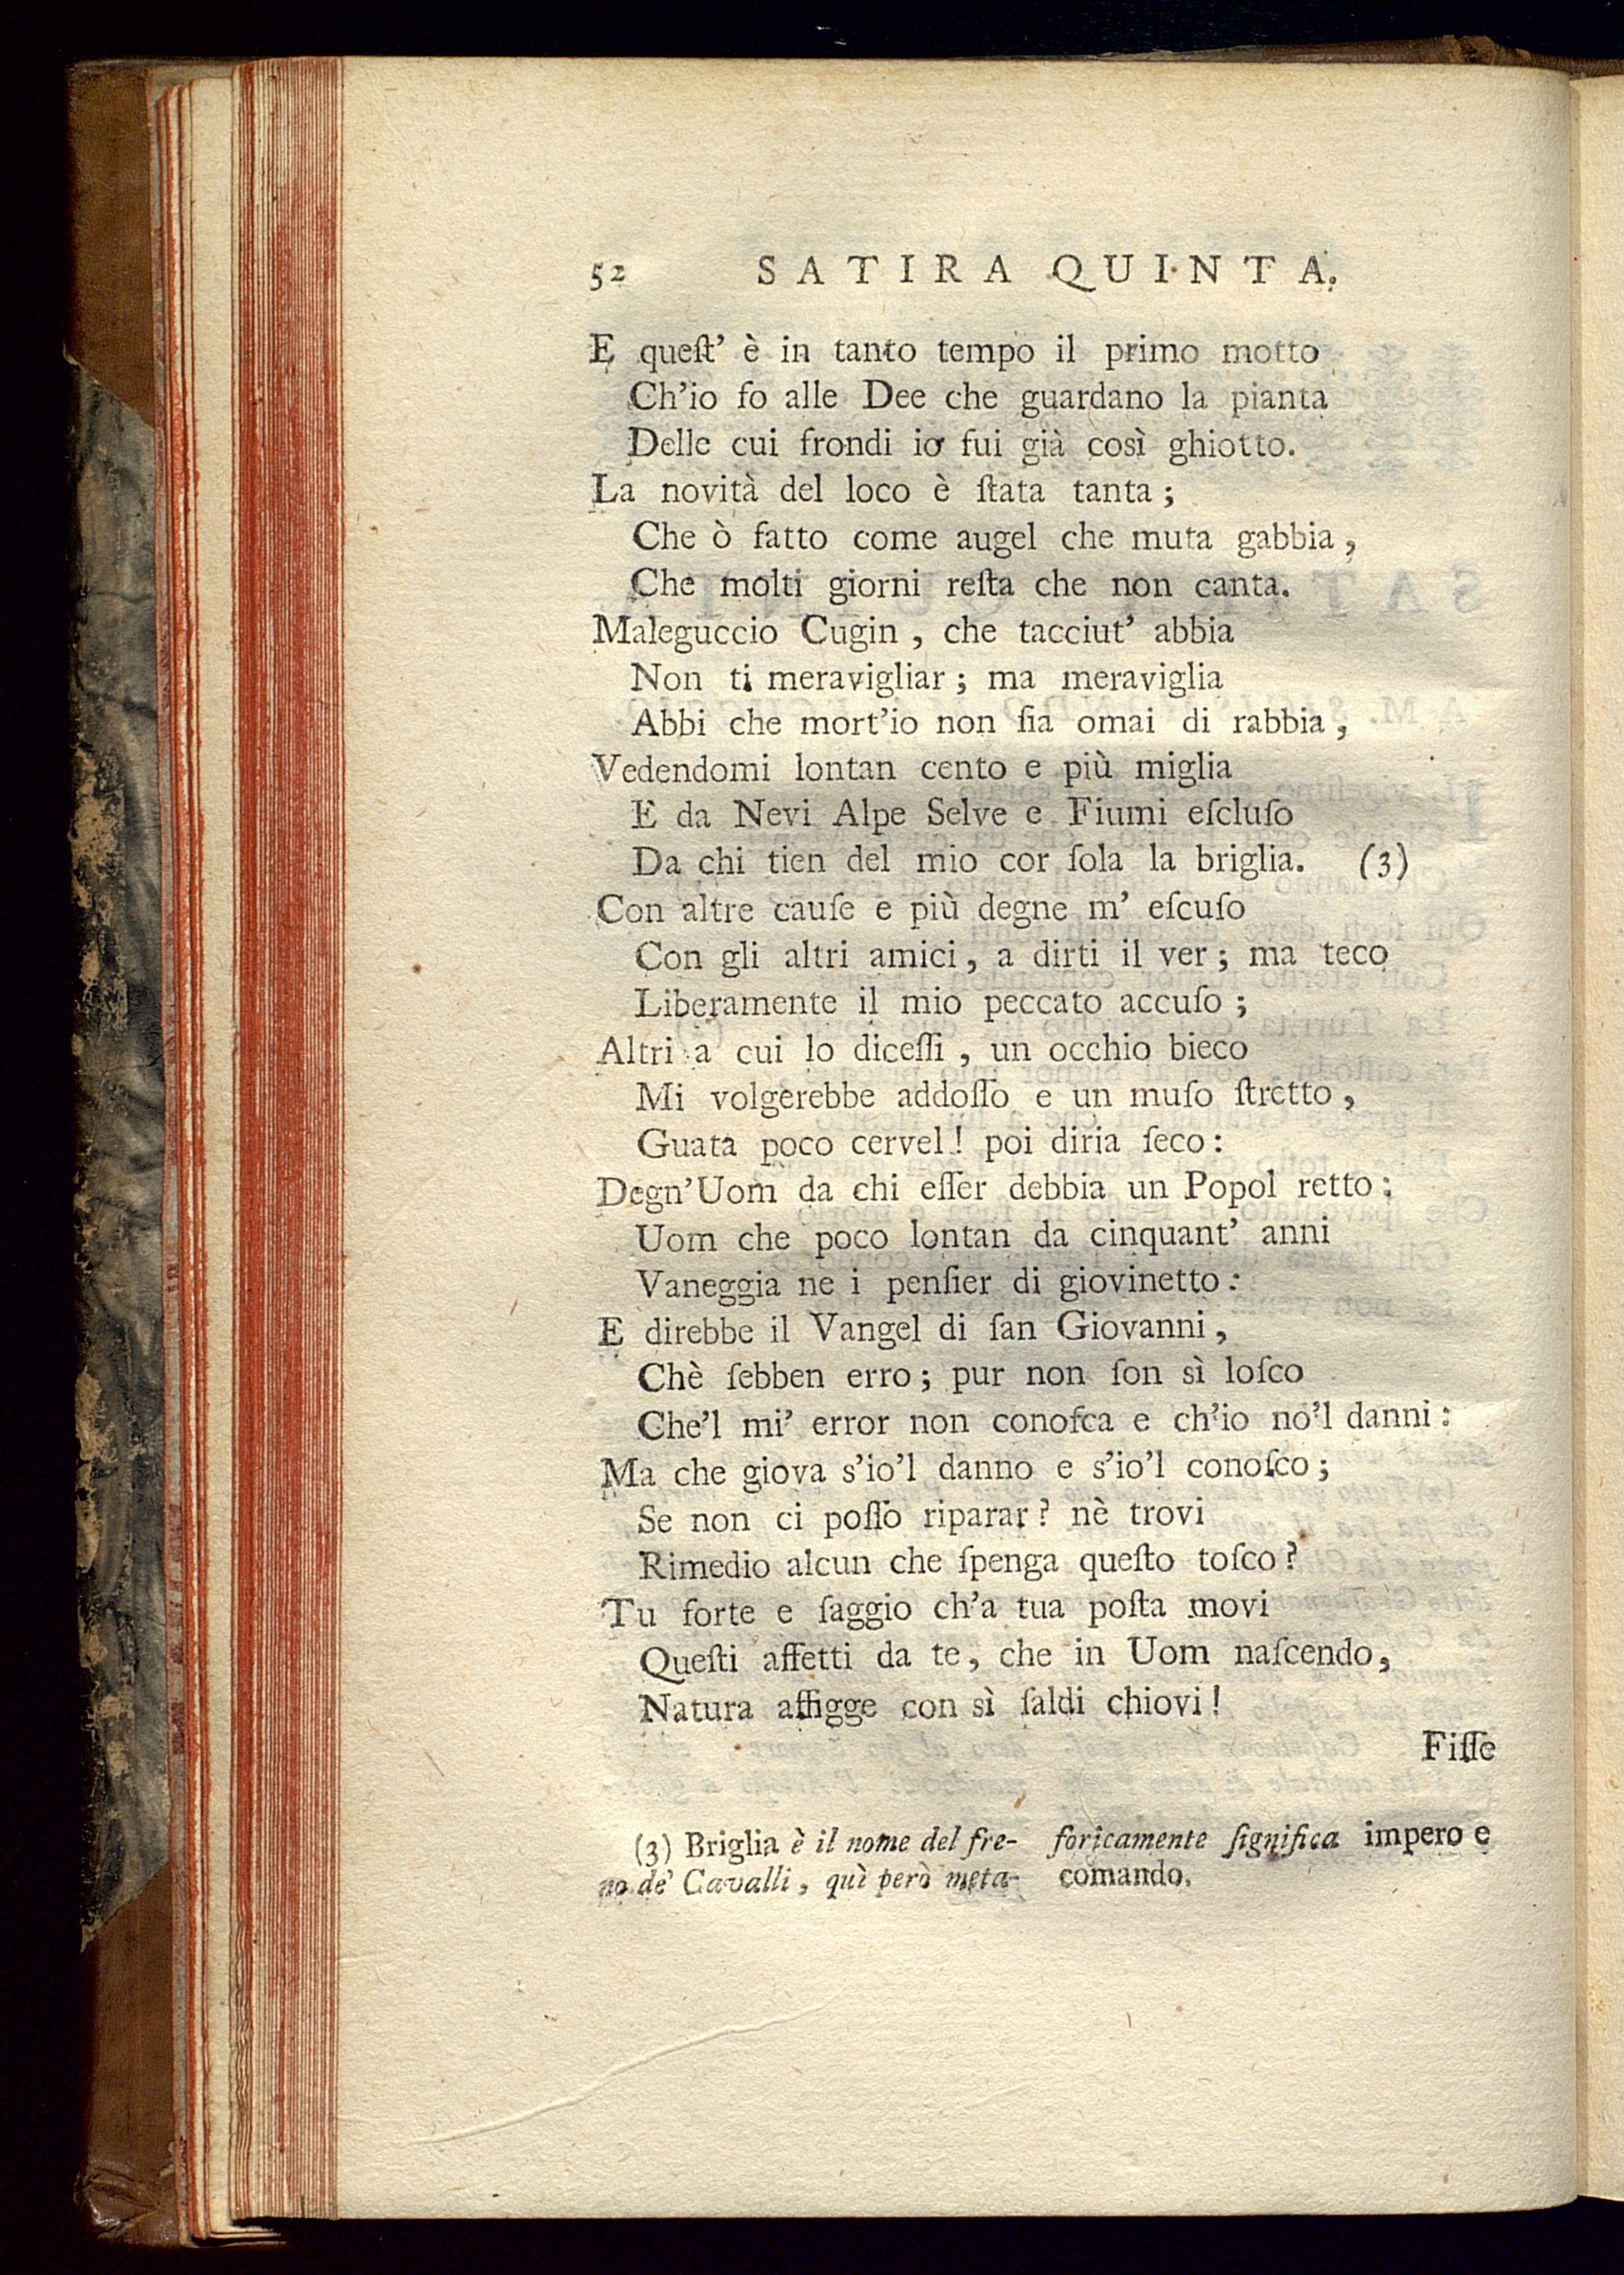 52 SATIRA QUINTA.
E queſt' è in tanto tempo il primo motto
Ch'io fo alle Dee che guardano la pianta
Delle cui frondi io fui già così ghiotto.
La novità del loco è ſtata tanta;
Che ò fatto come augel che muta gabbia,
Che molti giorni reſta che non canta.
Maleguccio Cugin, che tacciut' abbia
Non ti meravigliar; ma meraviglia
Abbi che mort'io non ſia omai di rabbia,
Vedendomi lontan cento e più miglia
E da Nevi Alpe Selve e Fiumi eſcluſo
Da chi tien del mio cor ſola la briglia. (3)
Con altre cauſe e più degne m' eſcuſo
Con gli altri amici, a dirti il ver; ma teco
Liberamente il mio peccato accuſo;
Altri a cui lo diceſſi, un occhio bieco
Mi volgerebbe addoſſo e un muſo ſtretto,
Guata poco cervel! poi diria ſeco:
Degn'Uom da chi eſſer debbia un Popol retto:
Uom che poco lontan da cinquant' anni
Vaneggia ne i penſier di giovinetto:
E direbbe il Vangel di ſan Giovanni,
Chè ſebben erro; pur non ſon sì loſco
Che'l mi' error non conoſca e ch'io no'l danni:
Ma che giova s'io'l danno e s'io'l conoſco;
Se non ci poſſo riparar? nè trovi
Rimedio alcun che ſpenga queſto toſco?
Tu forte e ſaggio ch'a tua poſta movi
Queſti affetti da te, che in Uom naſcendo,
Natura affigge con sì ſaldi chiovi!
Fiſſe
(3) Briglia è il nome del fre-
no de' Cavalli, quì però meta-
foricamente ſignifica impero e
comando.